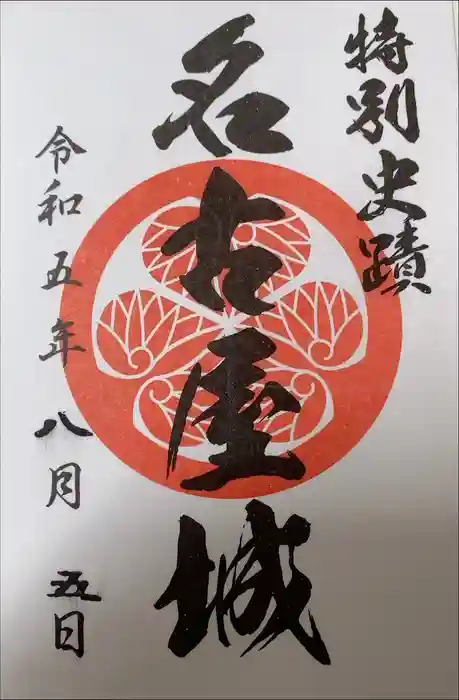 特別史蹟
名古屋城
令和五年八月五日